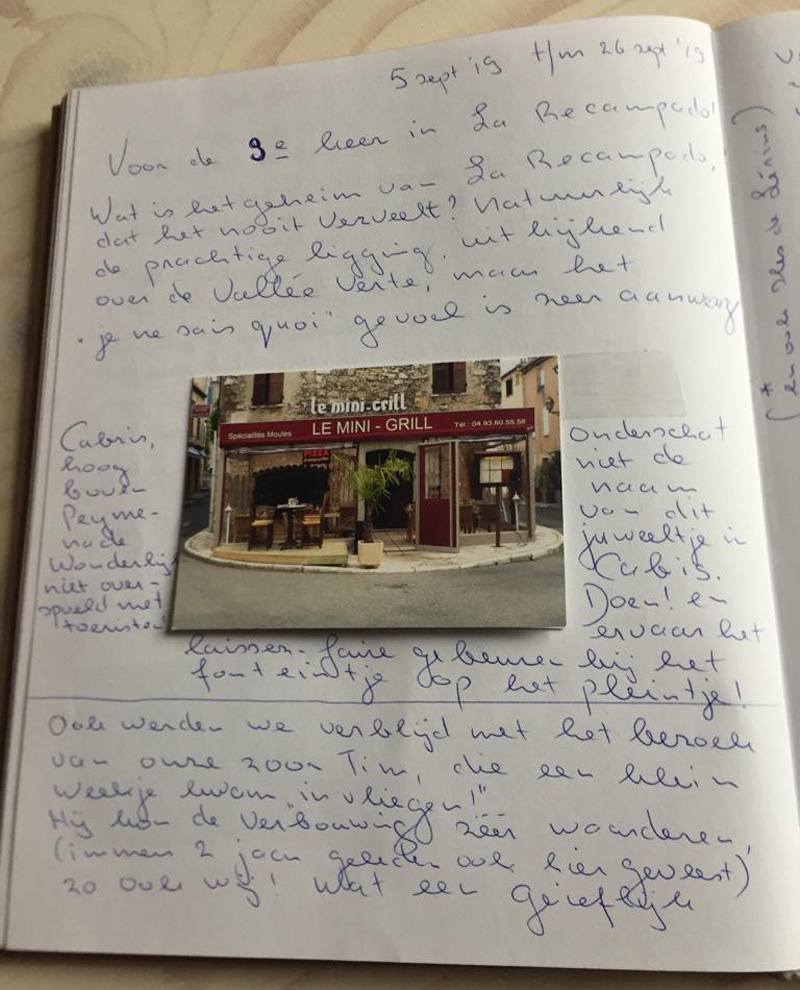 5 sept '19 t/m 26 sept '19
Voor de 9e keer in La Recampado!
Wat is het geheim van La Recampado,
dat het nooit verveelt? Natuurlijk
de prachtige ligging, uitkijkend
over de Vallée Verte, maar het
"je ne sais quoi" gevoel is zeer aanwezig
le mini-grill
Spécialités Moules LE MINI - GRILL Tél : 04.93.60.55.58
PIZZA
Cabris,
hoog
boven
Peyme-
nade
Wonderlijk
niet over-
spoeld met
toeristen!
Onderschat
niet de
naam
van dit
juweeltje in
Cabis.
Doen! en
ervaar het
laissez-faire gebeuren bij het
fonteintje op het pleintje!
Ook werden we verblijd met het bezoek
van onze zoon Tim, die een klein
weekje kwam "invliegen!"
Hij kon de verbouwing zéér waarderen,
(immers 2 jaar geleden ook hier geweest)
zo ook wij! Wat een gerieflijk
(en ook Iles de Lérins)
*